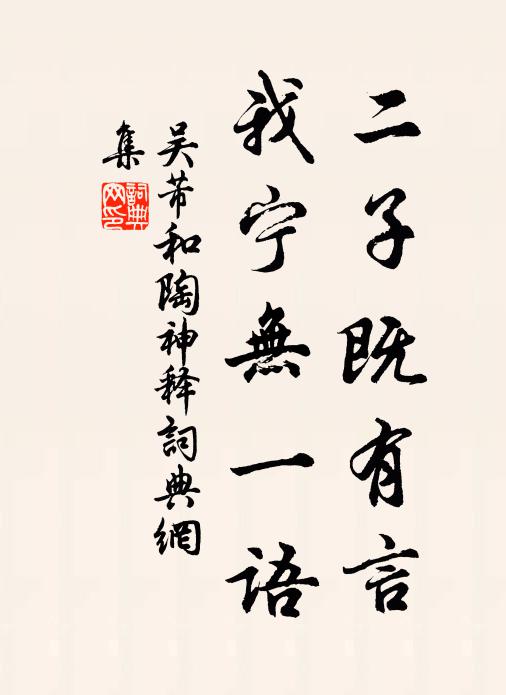 二子既有言
我宁無一语
吴芾和陶神释詞典網
集
詞典网印